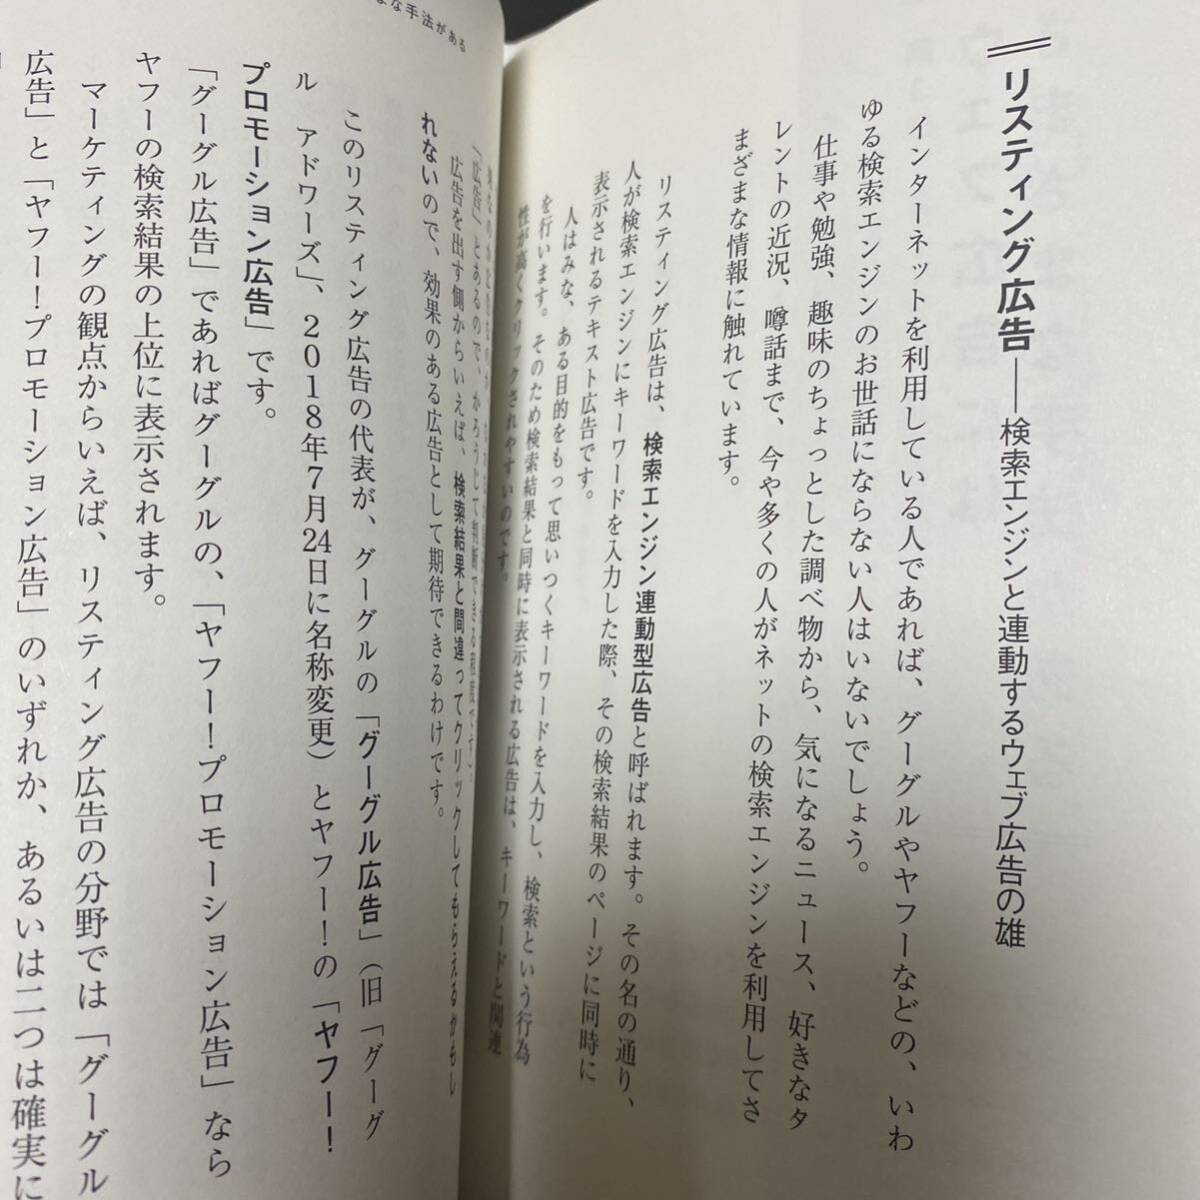 リスティング広告――検索エンジンと連動するウェブ広告の雄
インターネットを利用している人であれば、グーグルやヤフーなどの、いわ
ゆる検索エンジンのお世話にならない人はいないでしょう。
仕事や勉強、趣味のちょっとした調べ物から、気になるニュース、好きなタ
レントの近況、噂話まで、今や多くの人がネットの検索エンジンを利用してさ
まざまな情報に触れています。
リスティング広告は、検索エンジン連動型広告と呼ばれます。その名の通り、
人が検索エンジンにキーワードを入力した際、その検索結果のページに同時に
表示されるテキスト広告です。
人はみな、ある目的をもって思いつくキーワードを入力し、検索という行為
を行います。そのため検索結果と同時に表示される広告は、キーワードと関連
性が高くクリックされやすいのです。
「広告」とあるので、かろうじて判断できる程度です）。
広告を出す側からいえば、検索結果と間違ってクリックしてもらえるかもし
れないので、効果のある広告として期待できるわけです。
このリスティング広告の代表が、グーグルの「グーグル広告」（旧「グーグ
ル　アドワーズ」、2018年7月24日に名称変更）とヤフー！の「ヤフー！
プロモーション広告」です。
「グーグル広告」であればグーグルの、「ヤフー！プロモーション広告」なら
ヤフーの検索結果の上位に表示されます。
マーケティングの観点からいえば、リスティング広告の分野では「グーグル
広告」と「ヤフー！プロモーション広告」のいずれか、あるいは二つは確実に
な手法がある